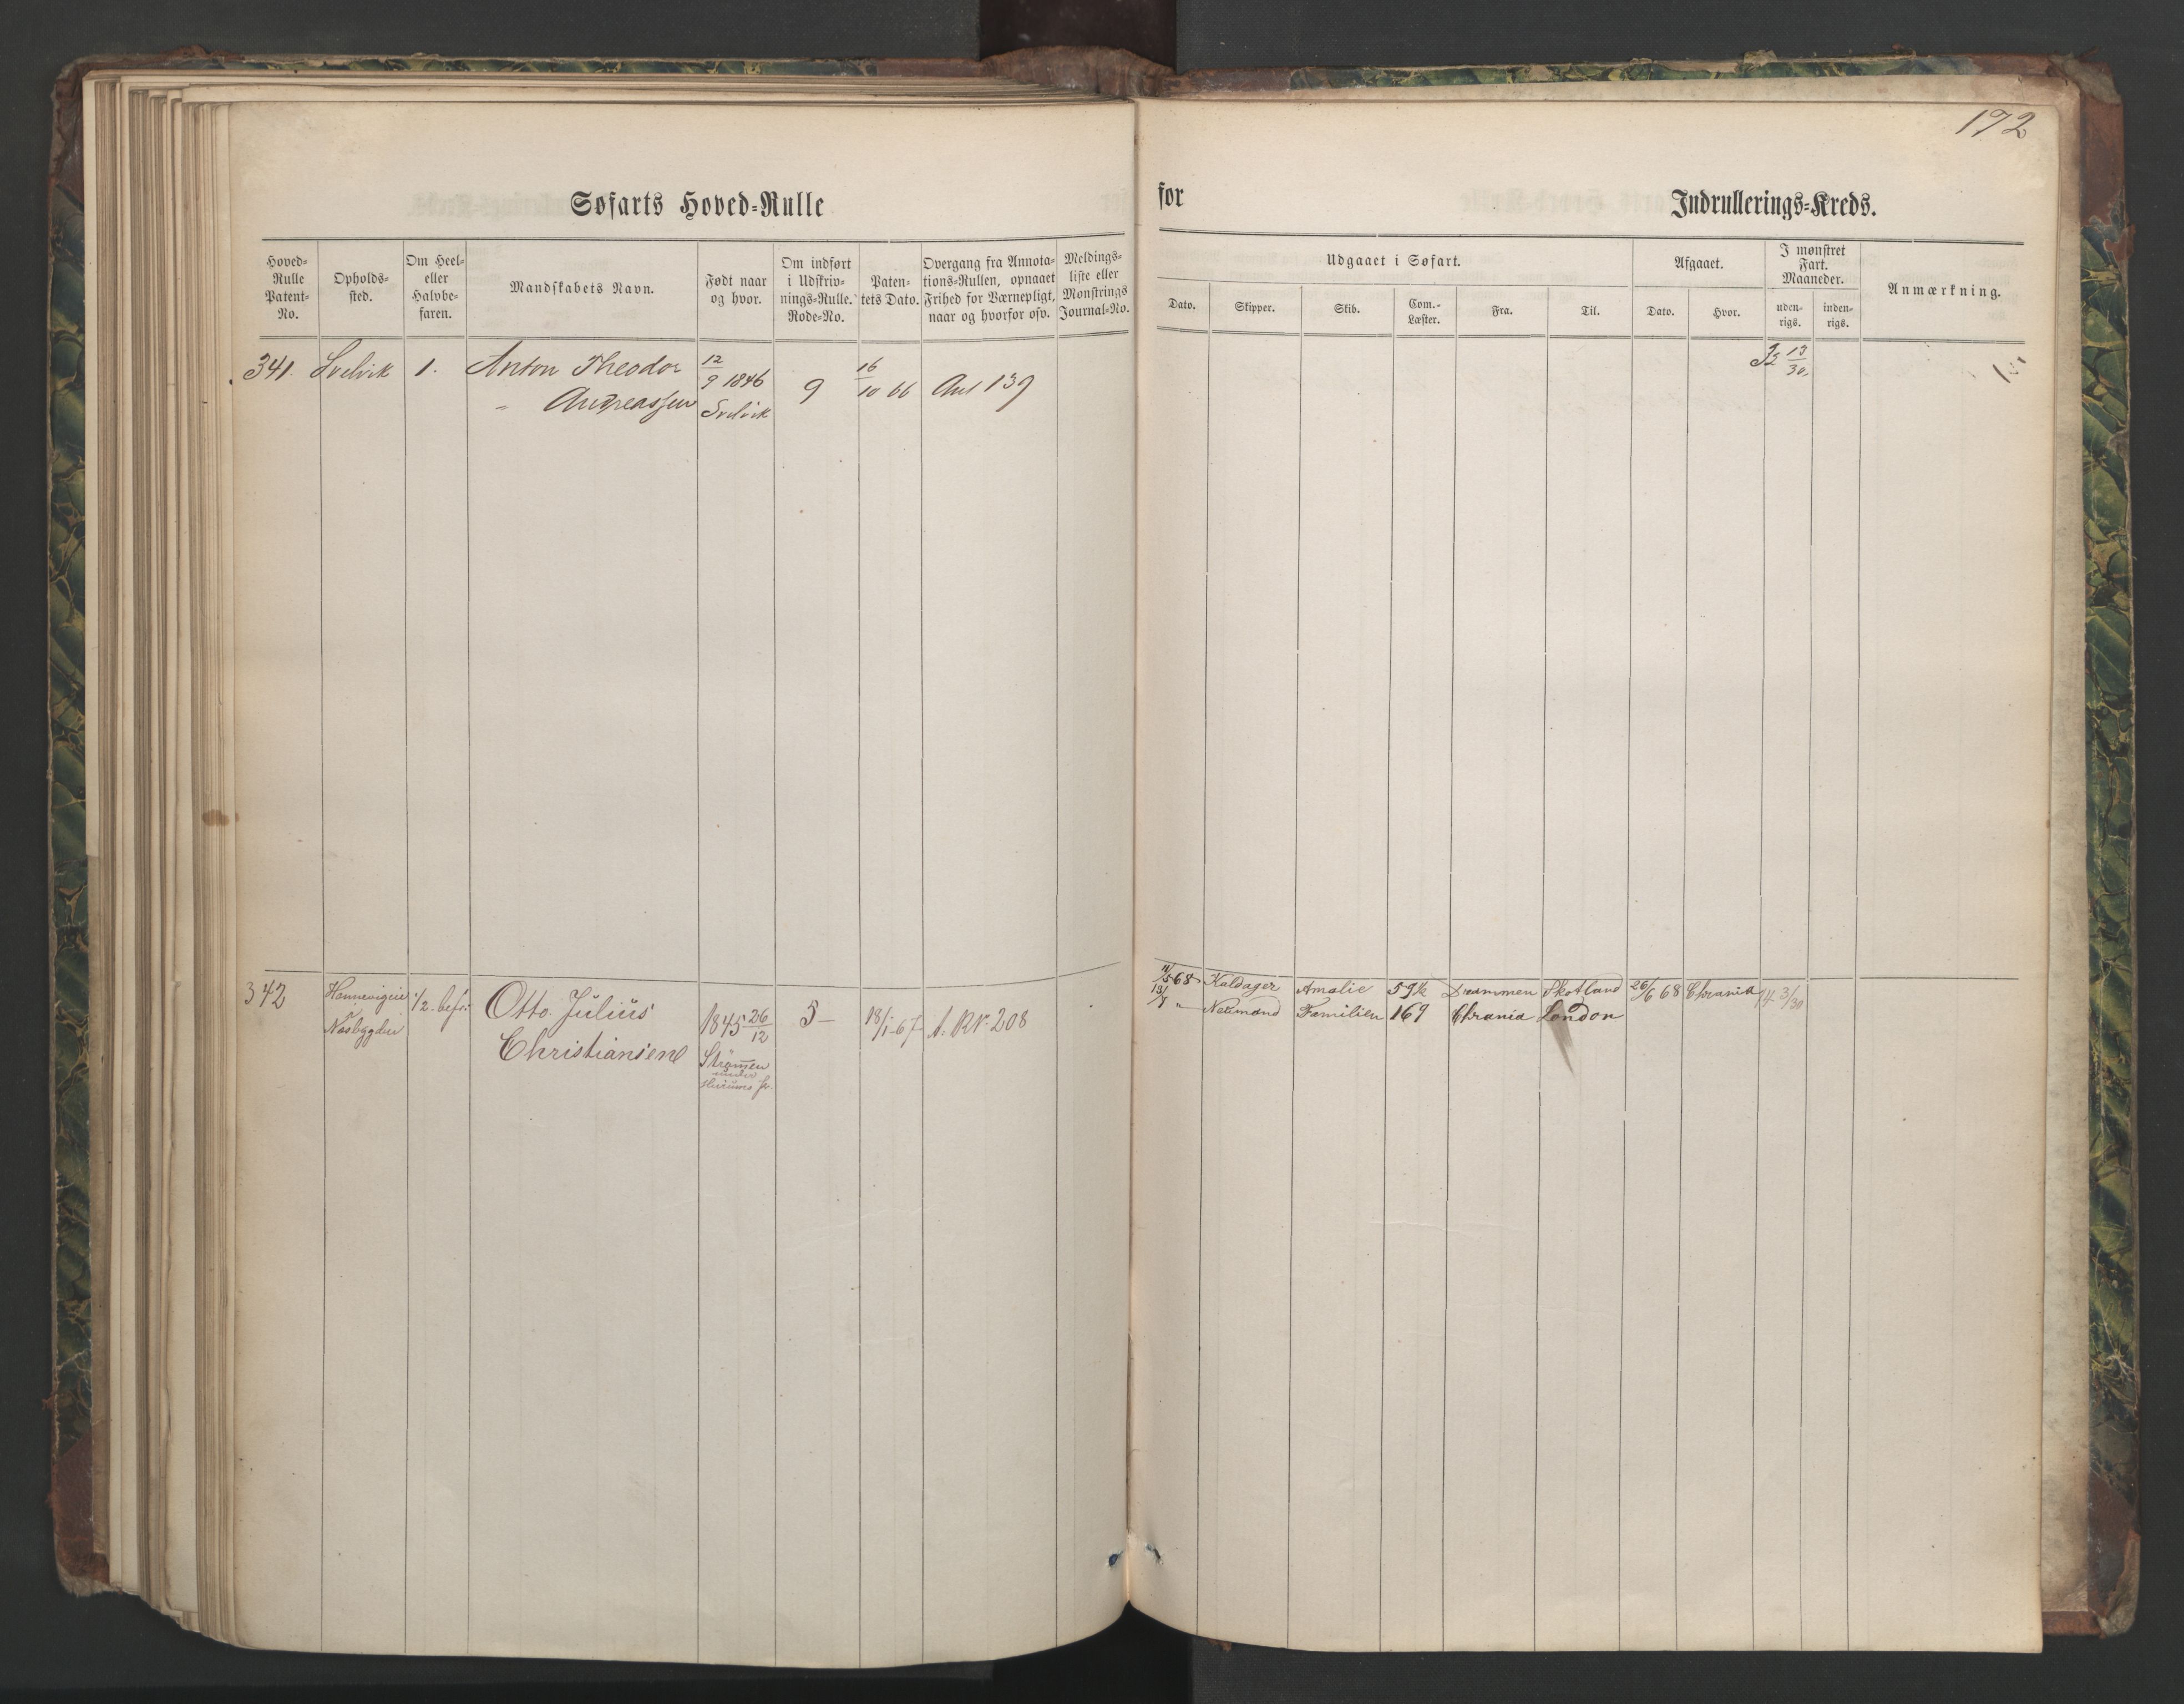 172
Søfarts Hoved-Rulle
for
Indrullerings-Kreds.
Hoved-Rulle Patent-No.
Opholds-sted.
Om Heel- eller Halvbe-faren.
Mandskabets Navn.
Født naar og hvor.
Om indført i Udskriv-nings-Rulle. Rode-No.
Paten-tets Dato.
Overgang fra Annota-tions-Rullen, opnaaet Frihed for Værnepligt, naar og hvorfor osv.
Meldings-liste eller Mønstrings Journal-No.
Udgaaet i Søfart.
Dato.
Skipper.
Skib.
Com.-Læster.
Fra.
Til.
Afgaaet.
Dato.
Hvor.
I mønstret Fart. Maaneder.
uden-rigs.
inden-rigs.
Anmærkning.
341. Svelvik 1. Anton Theodor 12/9 1846 9 16/10 66 Ant 139
" Andreassen Svelvik
13/30
342 1/2 bef: Otto Julius 1845 26/12 5 18/1-67 A. R. N. 208
Næsbygden Christiansen Strømmen
under
Hurums
11/5 68 Kaldager Amalie 59½ Drammen Skotland 26/6 68 Chrania 14 3/30
13/7 " Familien 169 Chrania London